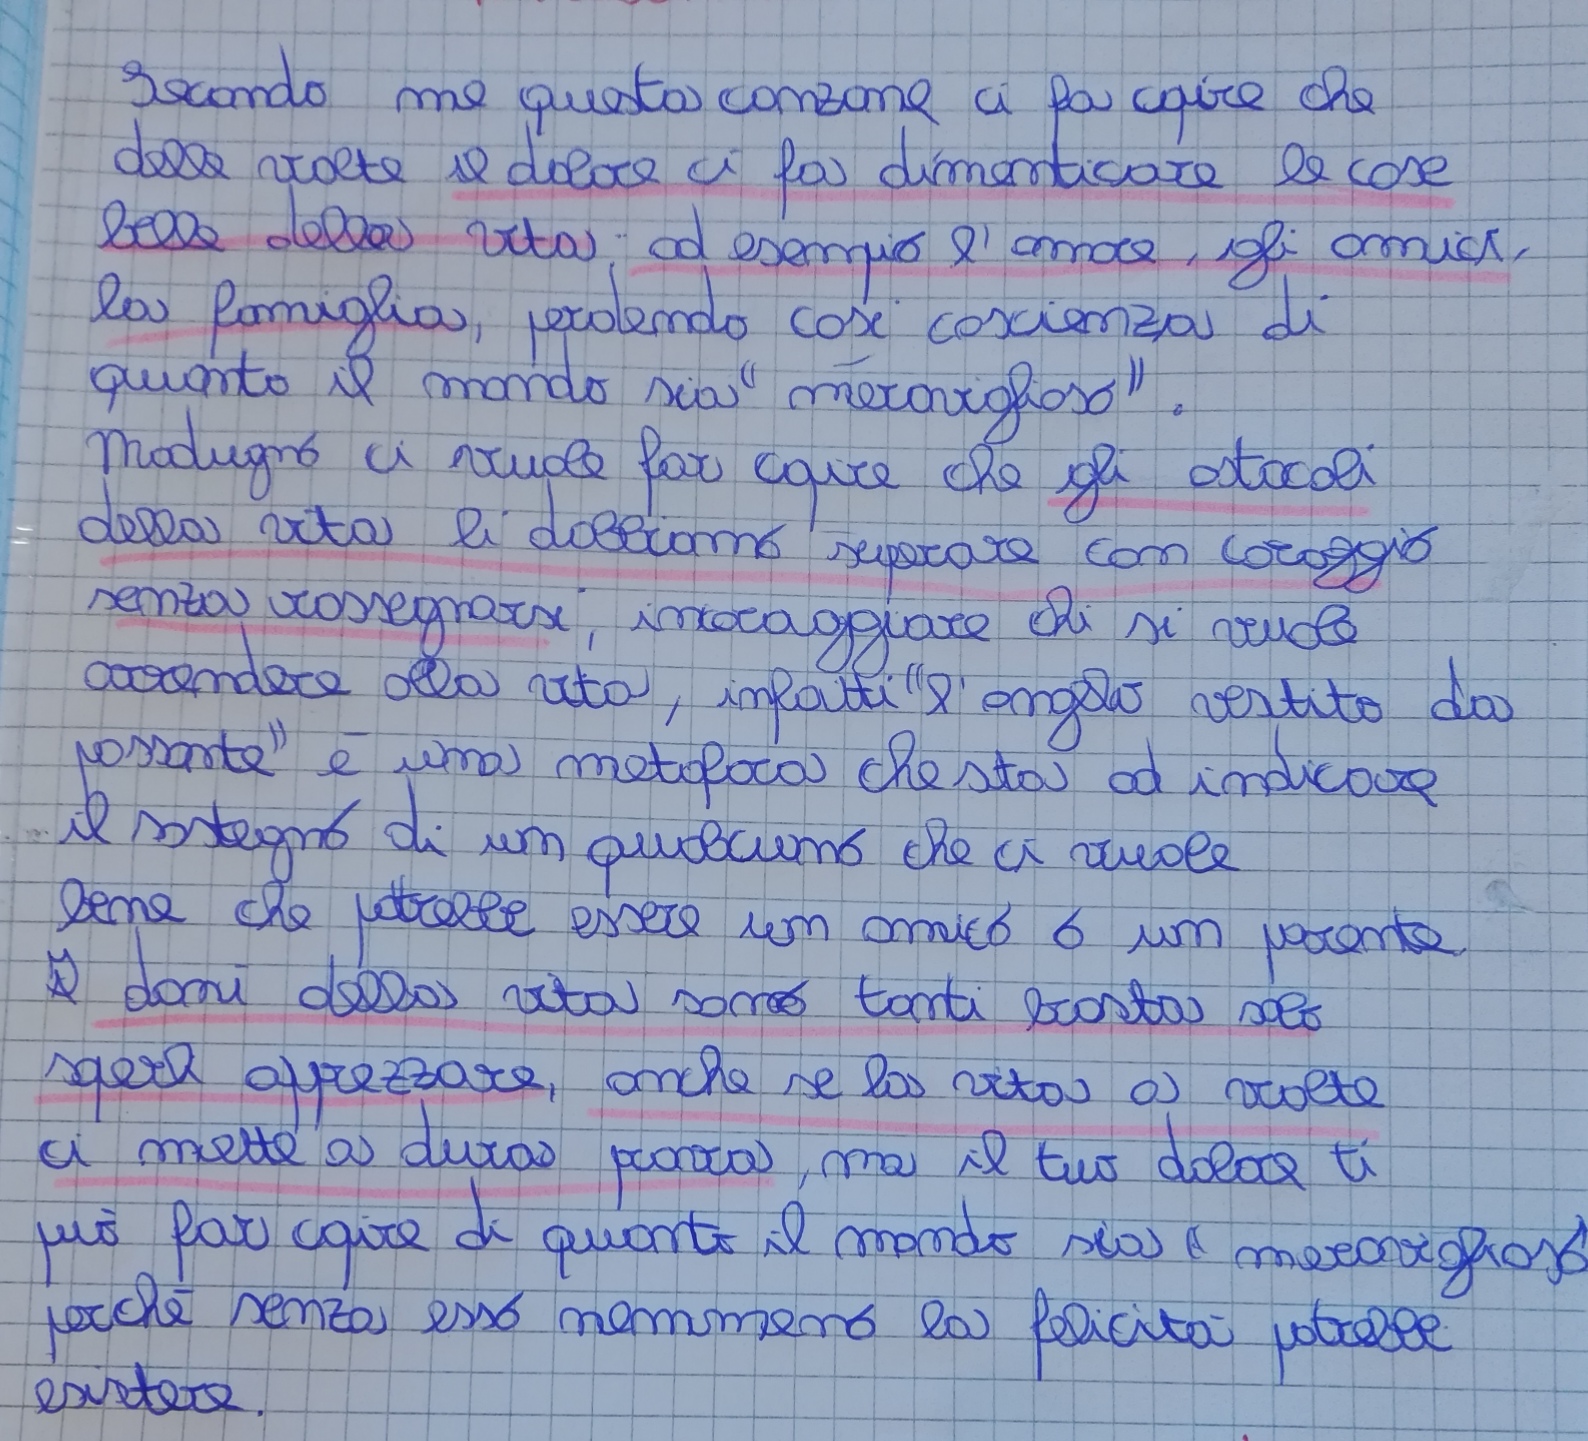 Secondo me questa canzone ci fa capire che
delle volte il dolore ci fa dimenticare le cose
belle della vita: ad esempio l'amore, gli amici,
la famiglia, perdendo così coscienza di
quanto il mondo sia "meraviglioso".
Modugno ci vuole far capire che gli ostacoli
della vita li dobbiamo superare con coraggio
senza rassegnarsi, incoraggiare chi si vuole
arrendere alla vita, infatti "l'angelo vestito da
passante" è una metafora che sta ad indicare
il sostegno di un qualcuno che ci vuole
bene che potrebbe essere un amico o un parente
I doni della vita sono tanti basta solo
saperli apprezzare, anche se la vita a volte
ci mette a dura prova, ma il tuo dolore ti
può far capire di quanto il mondo sia "meraviglioso
perché senza esso nemmeno la felicità potrebbe
esistere.